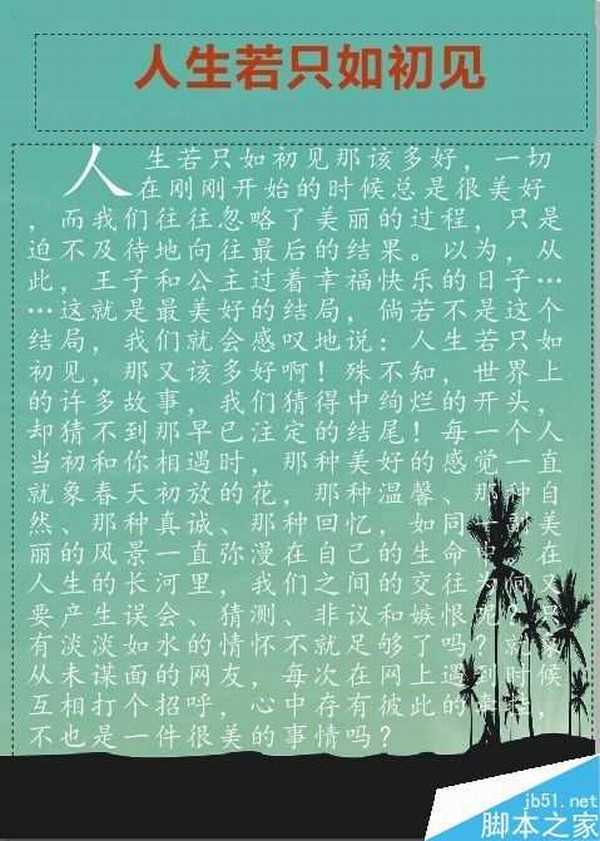 人生若只如初见
人生若只如初见那该多好，一切
在刚刚开始的时候总是很美好
，而我们往往忽略了美丽的过程，只是
迫不及待地向往最后的结果。以为，从
此，王子和公主过着幸福快乐的日子…
…这就是最美好的结局，倘若不是这个
结局，我们就会感叹地说：人生若只如
初见，那又该多好啊！殊不知，世界上
的许多故事，我们猜得中绚烂的开头，
却猜不到那早已注定的结尾！每一个人
当初和你相遇时，那种美好的感觉一直
就象春天初放的花，那种温馨、那种自
然、那种真诚、那种回忆，如同一副美
丽的风景一直弥漫在自己的生命中，在
人生的长河里，我们之间的交往为何又
要产生误会、猜测、非议和嫉恨呢？只
有淡淡如水的情怀不就足够了吗？就象
从未谋面的网友，每次在网上遇到时候
互相打个招呼，心中存有彼此的
不也是一件很美的事情吗？
jb51.net
脚本之家